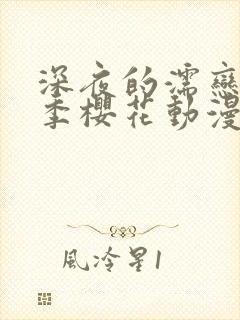 深夜的濡戀
季櫻花動漫
風冷星1